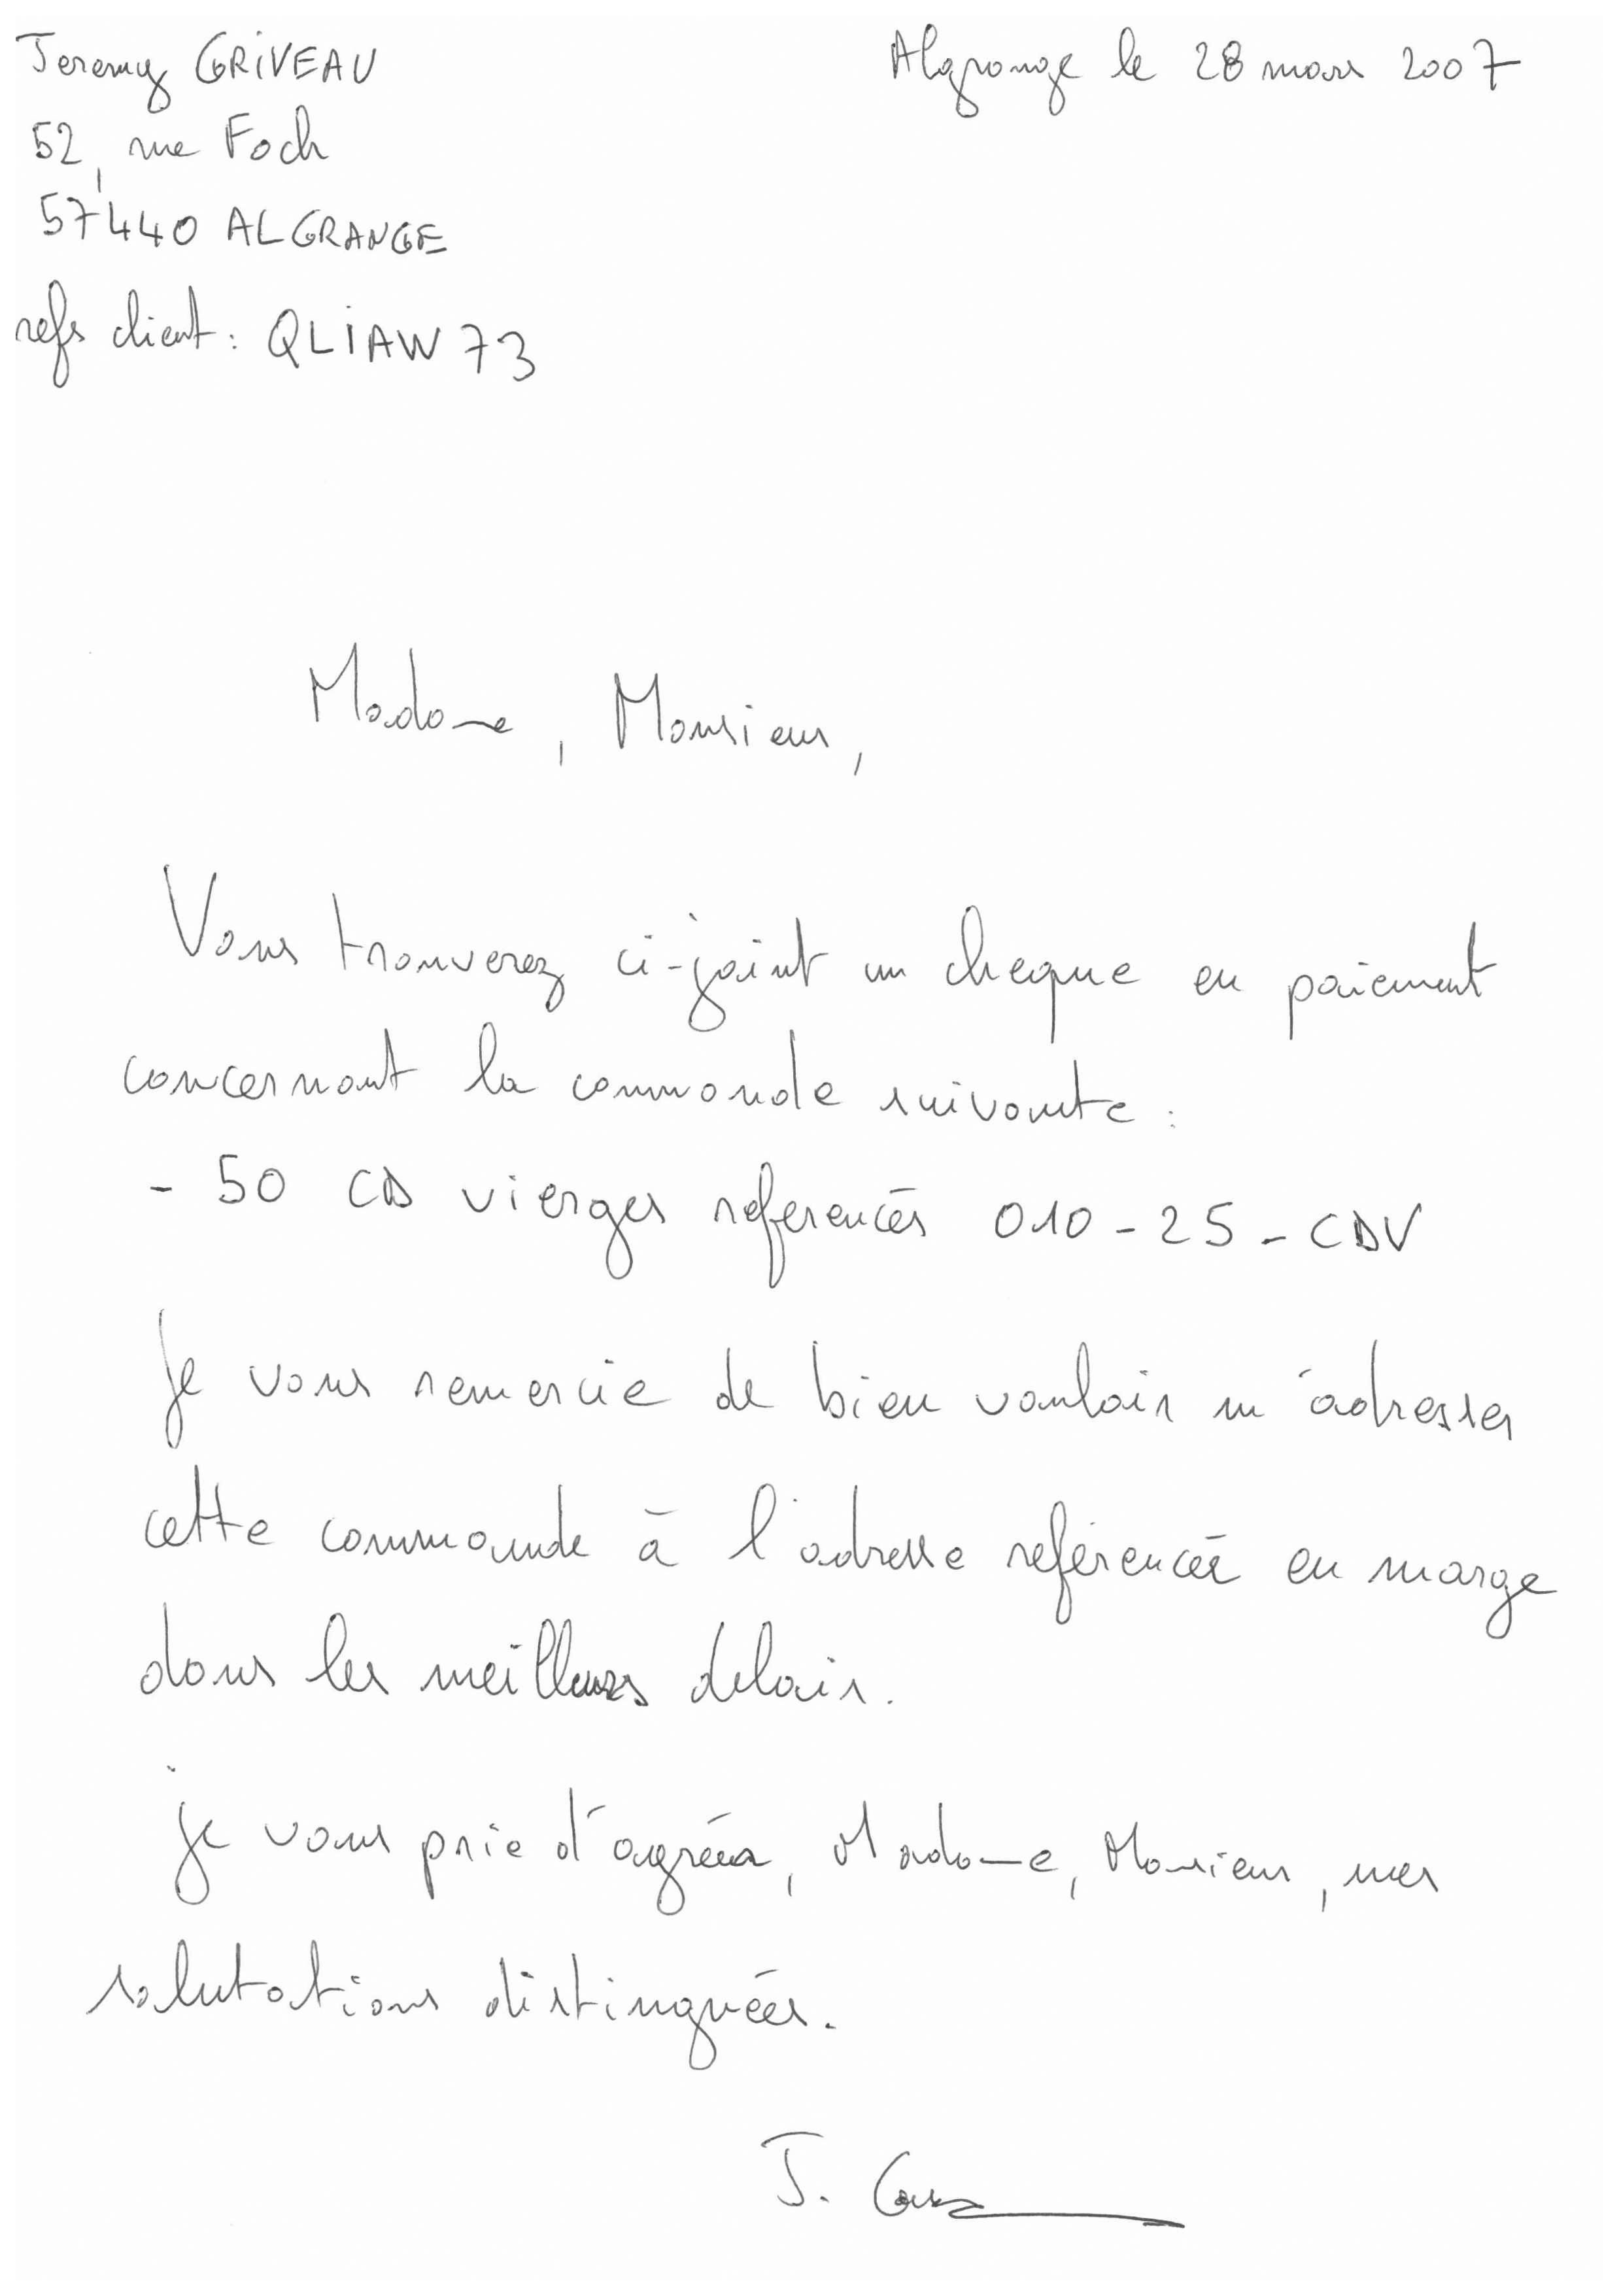 Jeremy GRIVEAU
52, rue Foch
57440 ALGRANGE
refs client : QLIAW73
Algrange le 28 mars 2007
Madame, Monsieur,
Vous trouverez ci-joint un cheque en paiement
concernant la commande suivante :
- 50 CD vierges referencés 010-25-CDV
Je vous remercie de bien vouloir m'adresser
cette commande à l'adresse referencée en marge
dans les meilleurs delais.
je vous prie d'agréer, Madame, Monsieur, mes
salutations distinguées.
J.